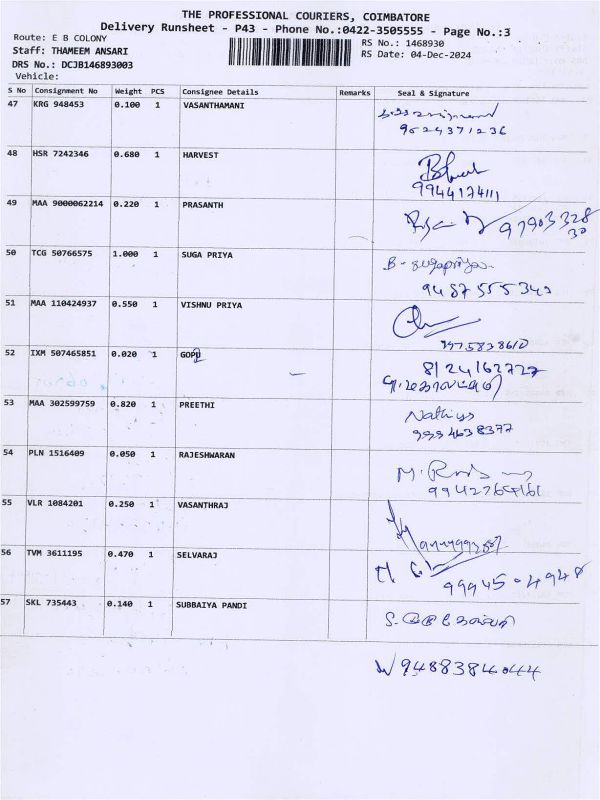 THE PROFESSIONAL COURIERS, COIMBATORE
Delivery Runsheet - P43 - Phone No.:0422-3505555 - Page No.:3
Route: E B COLONY
RS No.: 1468930
Staff: THAMEEM ANSARI
RS Date: 04-Dec-2024
DRS No.: DCJB146893003
Vehicle:
S No Consignment No Weight PCS Consignee Details Remarks Seal & Signature
47 KRG 948453 0.100 1 VASANTHAMANI
48 HSR 7242346 0.680 1 HARVEST
9944174111
49 MAA 9000062214 0.220 1 PRASANTH
97903328
30
50 TCG 50766575 1.000 1 SUGA PRIYA B-sugapriya
9487555343
51 MAA 110424937 0.550 1 VISHNU PRIYA
52 IXM 507465851 0.020 1 GOPU 8124162727
53 MAA 302599759 0.820 1 PREETHI Nathiya
9994638377
54 PLN 1516409 0.050 1 RAJESHWARAN
55 VLR 1084201 0.250 1 VASANTHRAJ
56 TVM 3611195 0.470 1 SELVARAJ
9994504948
57 SKL 735443 0.140 1 SUBBAIYA PANDI
9488384044